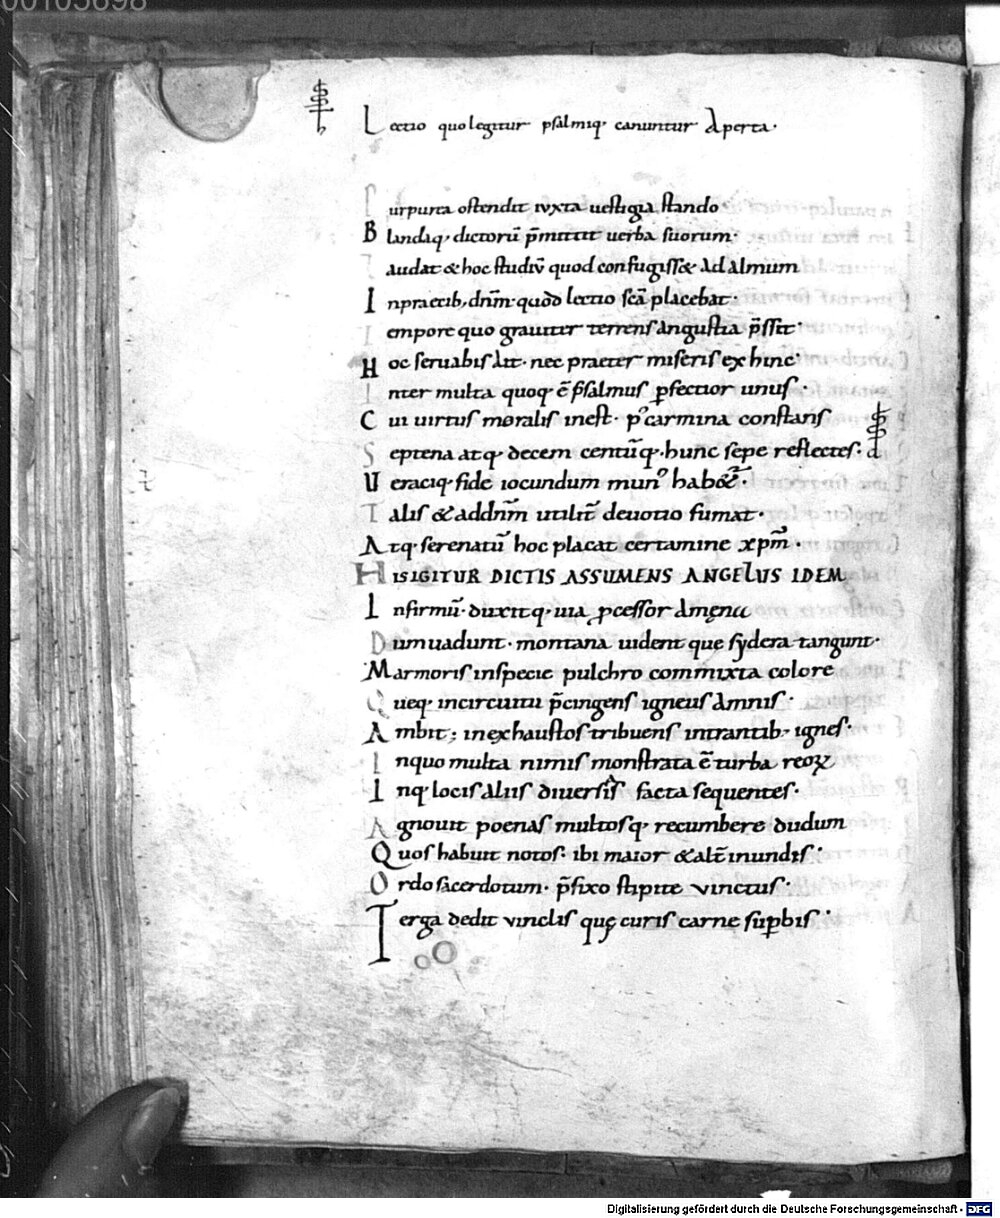 00105698
Lectio quo legitur psalmiq· canuntur Aperta·
Purpurea ostendit iuxta uestigia stando
Blandaq· dictorū p̄mittit uerba suorum·
Laudat & hoc studiū quod confugiss& ad almum
In praecib; dn̄m· quādo lectio sc̄a placebat·
Tempore quo grauiter terrens angustia p̄ssit·
Hoc seruabis ait· nec praeter miseris ex hinc·
Inter multa quoq· ē psalmus ꝑfectior unus·
Cui uirtus moralis inest· carmina constans
Septena atq· decem centūq·, hunc sepe reflectes·
Ueraciq· fide iocundum
Talis & ad dn̄m utilit̄ deuotio fumat·
Atq· serenatū hoc placat certamine xp̄m·
HIS IGITUR DICTIS ASSUMENS ANGELUS IDEM
Infirmū· duxitq· uia ꝓcessor amęna
Dum uadunt· montana uident que sydera tangunt·
Marmoris in specie pulchro commixta colore
Queq· in circuitu p̄cingens igneus amnis·
Ambit; inexhaustos tribuens intrantib; ignes·
In quo multa nimis monstrata ē turba reoꝝ
Inq· locis aliis diuersis facta sequentes·
Agnouit poenas multosq· recumbere dudum
Quos habuit notos· ibi maior & alt̄ in undis·
Ordo sacerdotum· p̄fixo stipite vinctus·
Terga dedit vinclis quę curis carne suꝑbis·
Digitalisierung gefördert durch die Deutsche Forschungsgemeinschaft - DFG